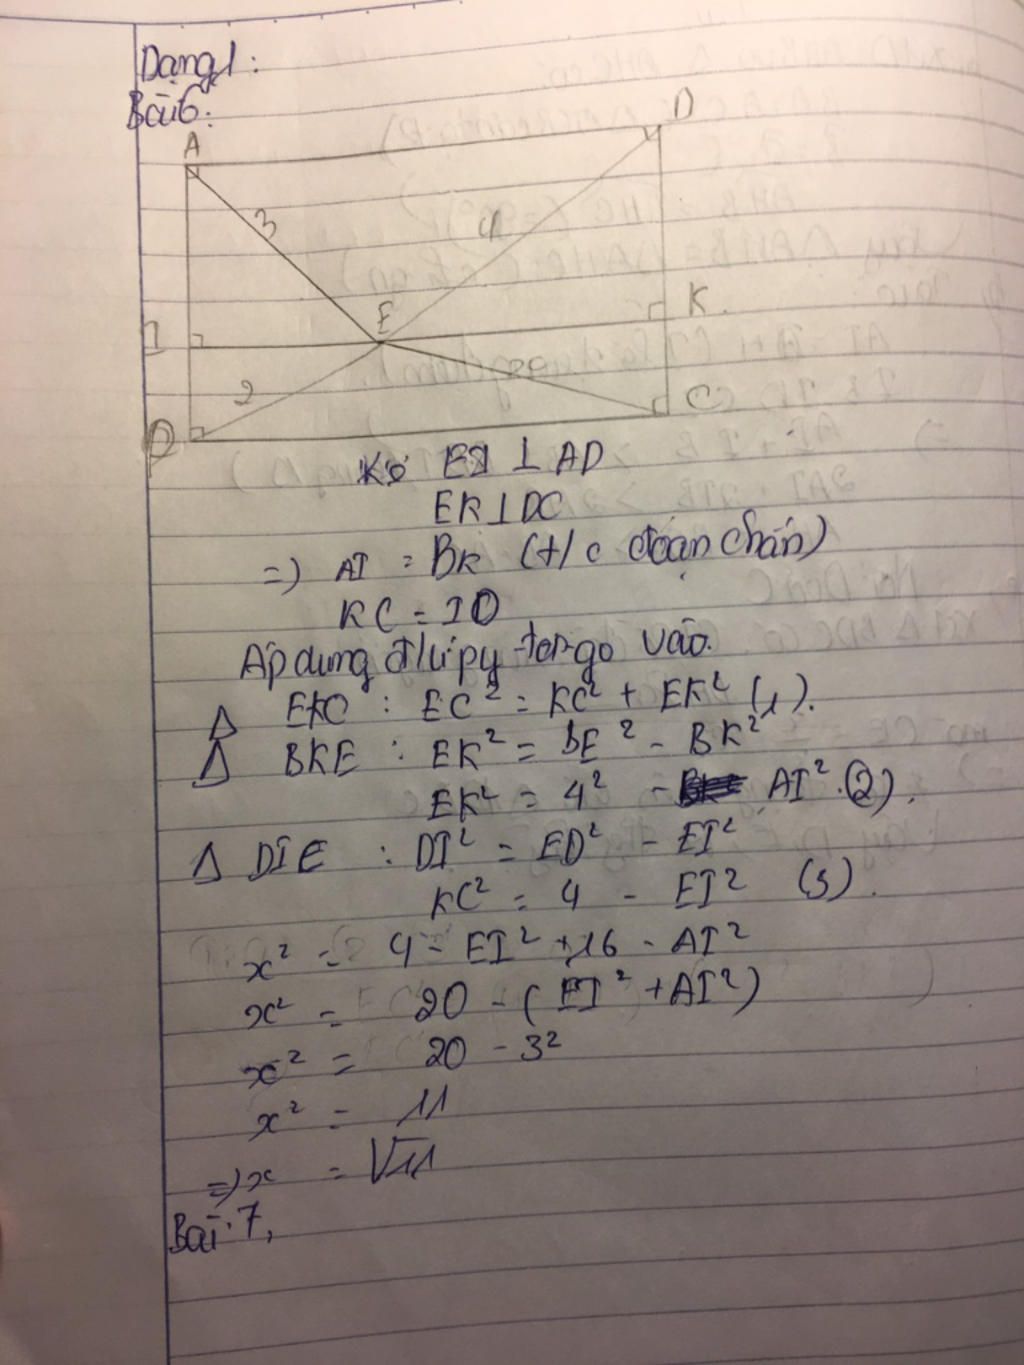 Dạng 1:
Bài 6:
A
D
3
4
E
K
I
2
x
C
D
Kẻ EI ⊥ AD
EK ⊥ DC
=) AI = BK (t/c đoạn chắn)
KC = ID
Áp dụng đ/lí py-ta-go vào.
Δ EKC : EC² = KC² + EK² (1).
Δ BKE : EK² = BE² - BK²
EK² = 4² - AI² (2).
Δ DIE : DI² = ED² - EI²
KC² = 4 - EI² (3).
x² = 4 - EI² + 16 - AI²
x² = 20 - (EI² + AI²)
x² = 20 - 3²
x² = 11
=) x = √11
Bài 7,